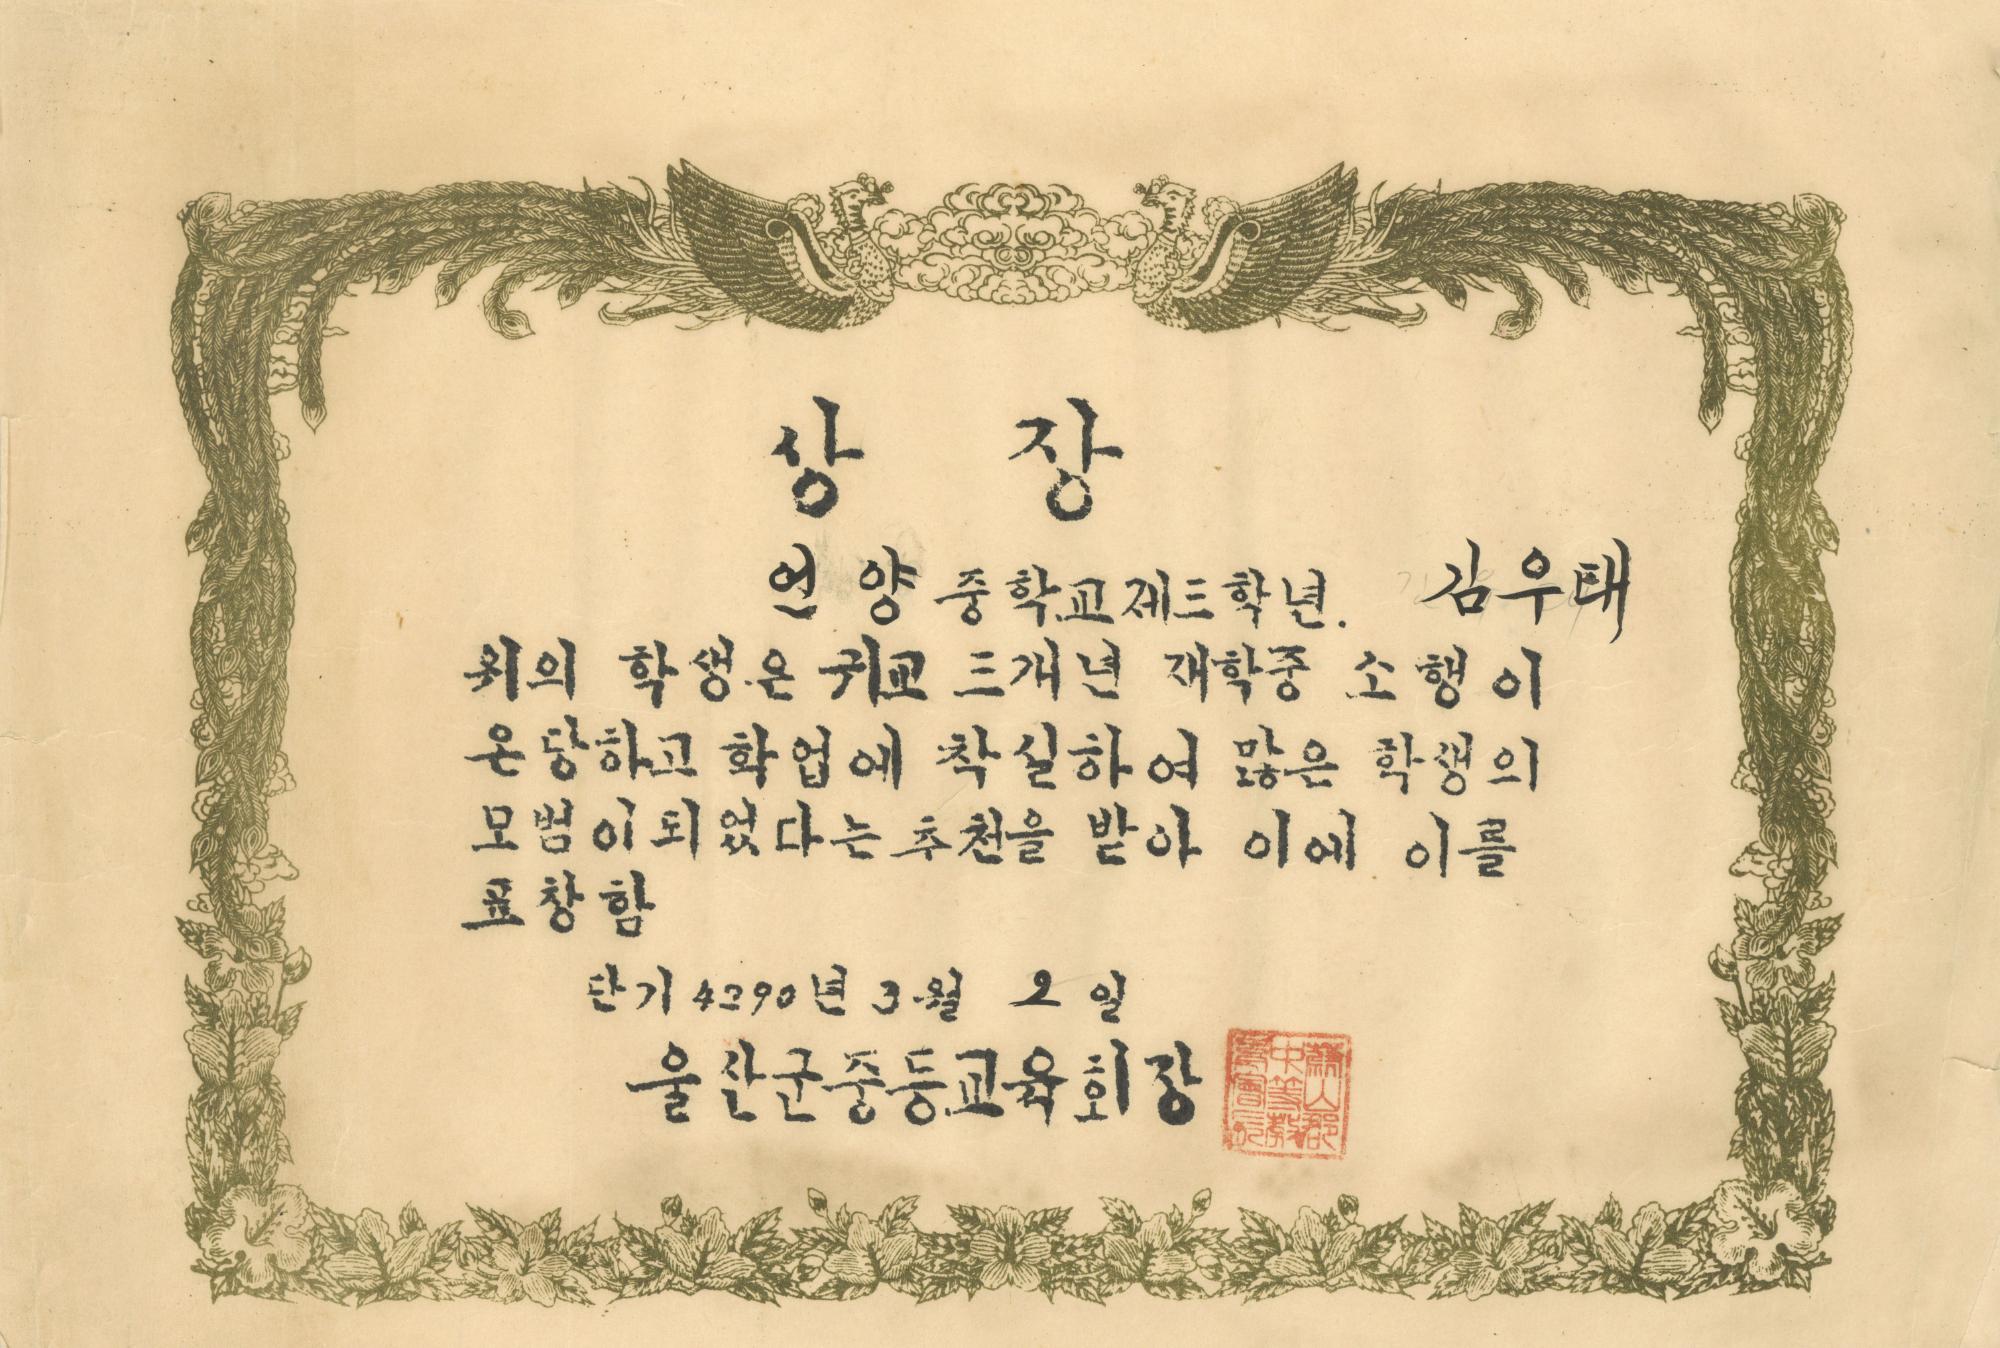 상 장
언양 중학교 제三학년. 김우태
위의 학생은 귀교 三개년 재학중 소행이
온당하고 학업에 착실하여 많은 학생의
모범이 되었다는 추천을 받아 이에 이를
표창함
단기 4290년 3월 2일
울산군중등교육회장
蔚山郡
中等教
育會長